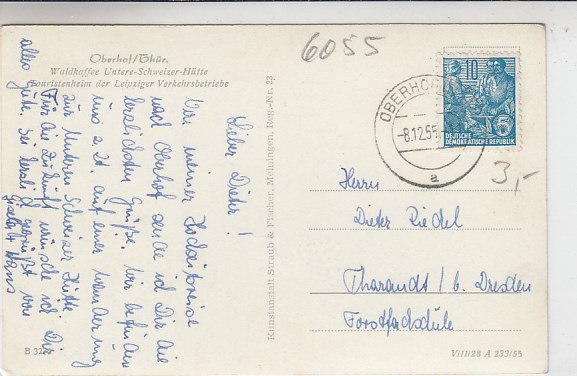 Oberhof/Thür.
Waldkaffee Untere-Schweizer-Hütte
Touristenheim der Leipziger Verkehrsbetriebe
6055
OBERHO
-8.12.55
a
10
DEUTSCHE
DEMOKRATISCHE REPUBLIK
3,-
Lieber Dieter!
Von meiner Hochzeitsreise
nach Oberhof sende ich Dir die
herzlichsten Grüße. Wir befinden
uns z. Zt. auf einer Wanderung
zur Unteren Schweizer Hütte.
Für die Zukunft wünsche ich Dir
alles Gute. Sei herzlich gegrüßt von
Hans
Kunstanstalt Straub & Fischer, Meiningen, Reg.-Nr. 23
Herrn
Dieter Riedel
Tharandt / b. Dresden
Forstfachschule
B 32
VIII/28 A 233/55